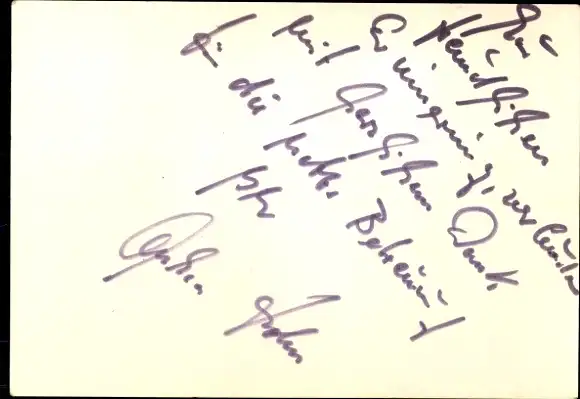 Zur
freundlichen
Erinnerung, verbunden
mit herzlichem Dank
für die nette Betreuung
Ihr